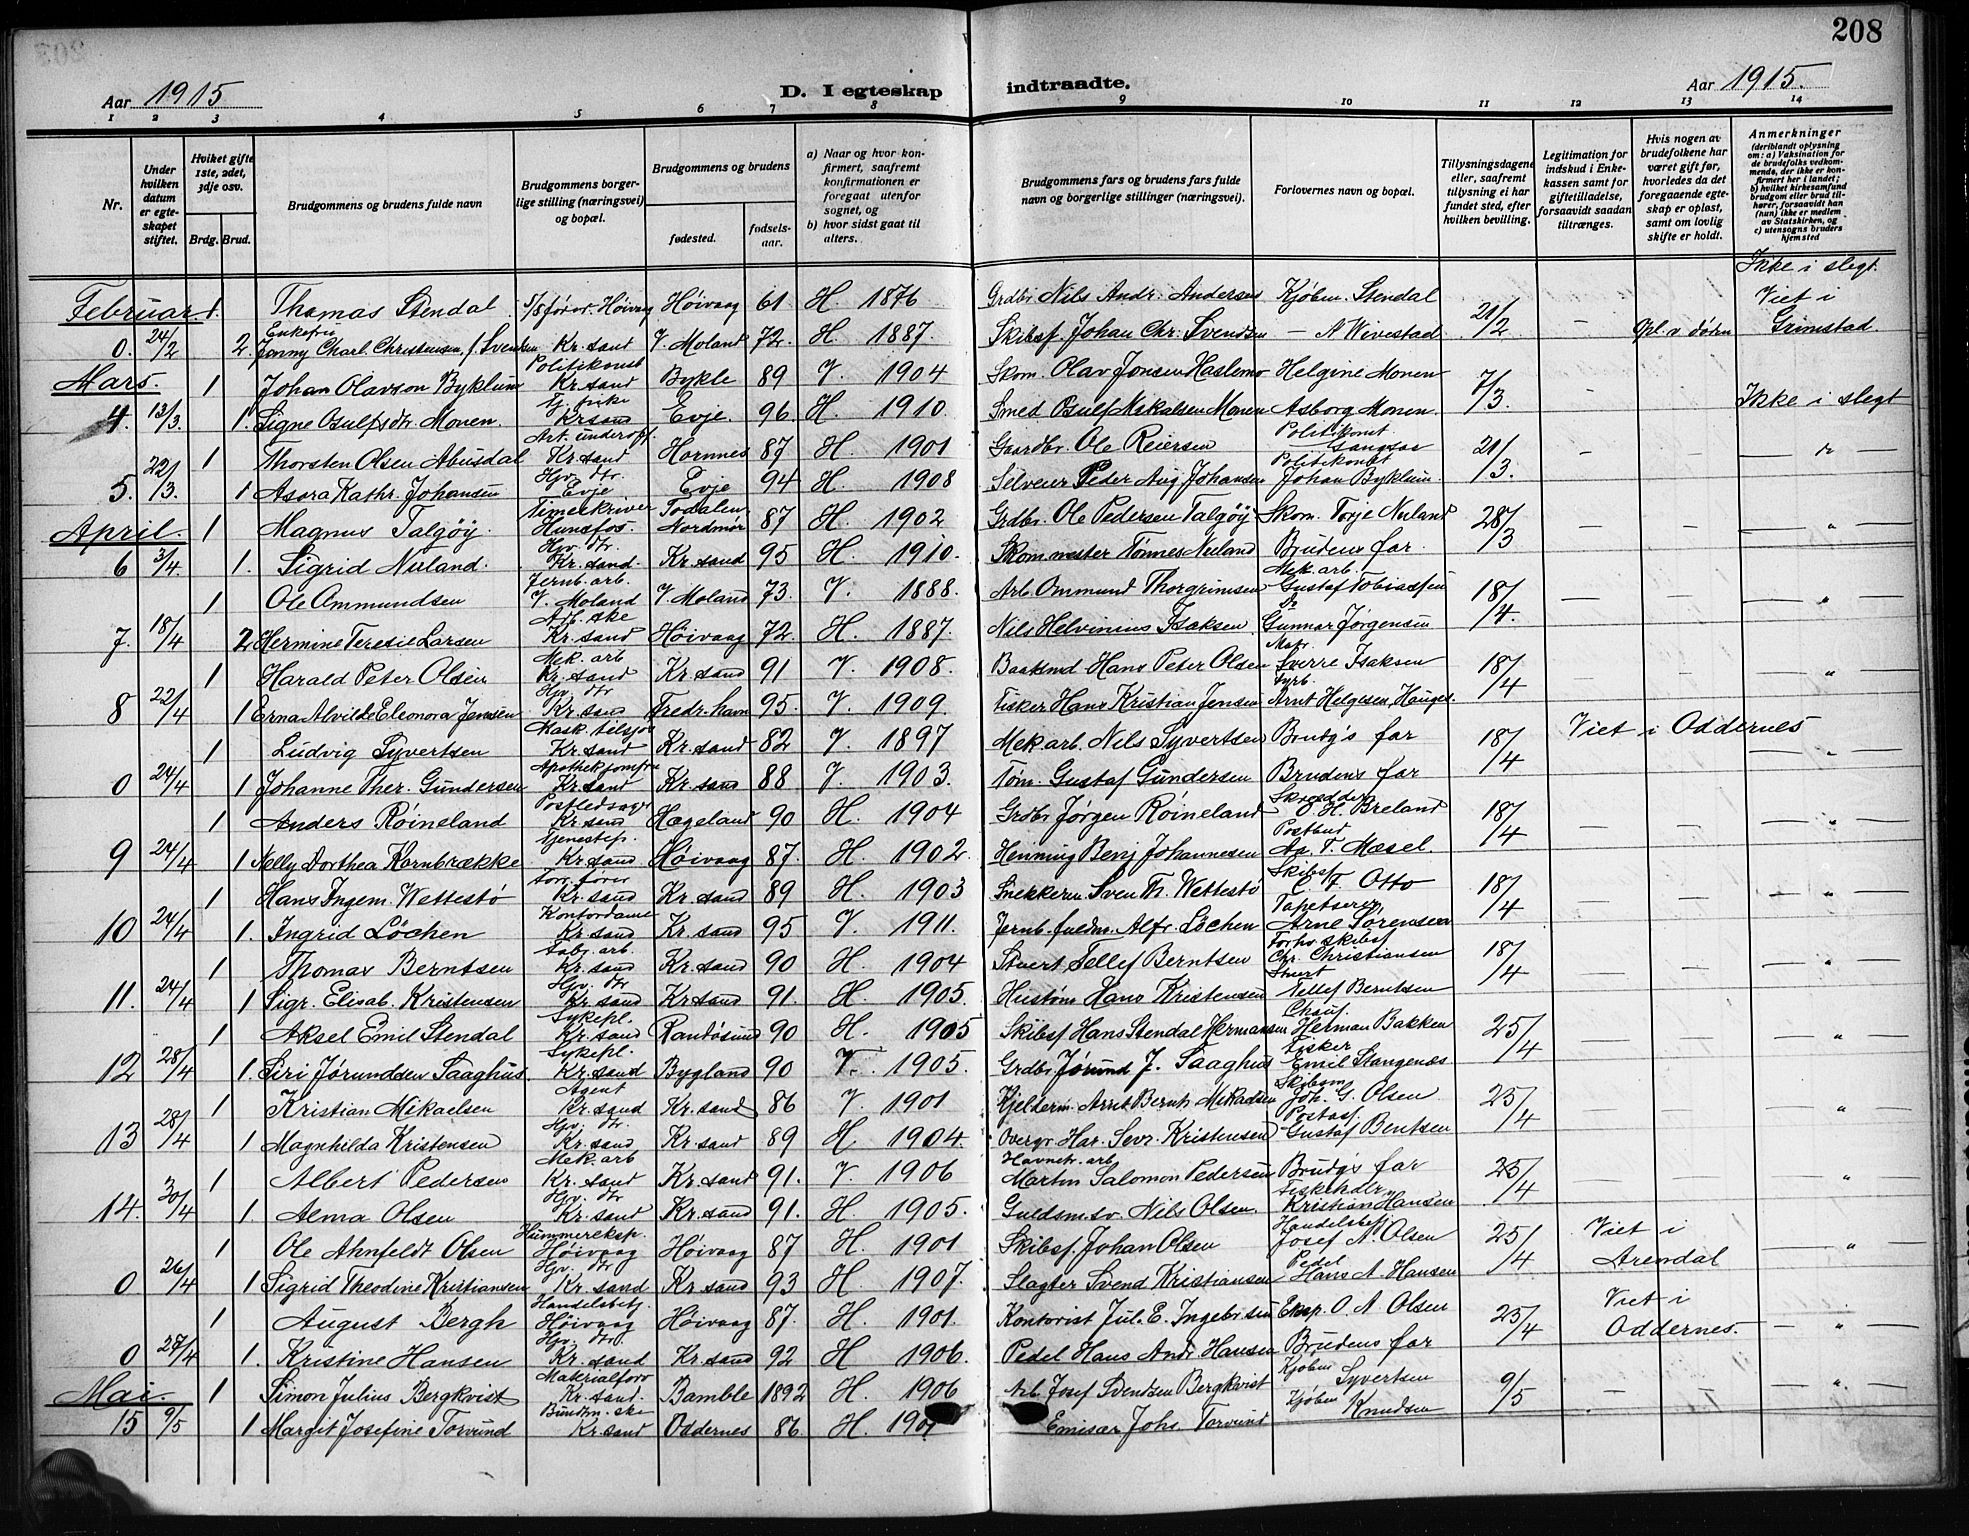 208
Aar 1915. D. I egteskap indtraadte. Aar 1915.
1 2 3 4 5 6 7 8 9 10 11 12 13 14
Nr.
Under hvilken datum er egteskapet stiftet.
Hviket gifte 1ste, 2det, 3dje osv.
Brdg. Brud.
Brudgommens og brudens fulde navn
Brudgommens borgerlige stilling (næringsvei) og bopæl.
Brudgommens og brudens
fødested. fødselsaar.
a) Naar og hvor konfirmert, saafremt konfirmationen er foregaat utenfor sognet, og
b) hvor sidst gaat til alters.
Brudgommens fars og brudens fars fulde navn og borgerlige stillinger (næringsvei).
Forlovernes navn og bopæl.
Tillysningsdagene eller, saafremt tillysning ei har fundet sted, efter hvilken bevilling.
Legitimation for indskud i Enkekassen samt for giftetilladelse, forsaavidt saadan tiltrænges.
Hvis nogen av brudefolkene har været gift før, hvorledes da det foregaaende egteskap er opløst, samt om lovlig skifte er holdt.
Anmerkninger
(deriblandt oplysning om: a) Vaksination for de brudefolks vedkommende, der ikke er konfirmert her i landet; b) hvilket kirkesamfund brudgom eller brud tilhører, forsaavidt han (hun) ikke er medlem av Statskirken, og c) utensogns bruders hjemsted
Ikke i slegt.
Februar. 1. Thomas Stendal S/S fører Høivag Høivaag 61 H. 1876 Grdbr Nils Andr. Andersen Kjøbm. Stendal 21/2 Viet i
0. 24/2 2. Enkefru Jenny Charl. Christensen f. Svendsen Kr. sand V. Moland 72. H. 1887. Skibsf. Johan Chr. Svendsen — A Wivestad — Grimstad.
Mars. 1 Johan Olavson Byklum Politikonst Kr. sand Bykle 89 V. 1904 Skom. Olav Jonsen Haslemo Helgine Monen 7/3. Ikke i slegt
4. 13/3. 1. Signe Osulfsdtr. Monen. Tj. pike Kr sand Evje. 96. H. 1910. Smed Osulf Mikalsen Monen Asborg Monen.
1 Thorsten Olsen Abusdal Art. underof. Kr. sand Hornnes 87 H. 1901 Gaardbr. Ole Reiersen Politikonst 21/3. — —
5. 22/3. 1 Asora Kathr. Johansen Hjv. dtr. Evje Evje 94 H. 1908 Selveier Peder Aug Johansen Politikonst Johan Byklum
April. 1 Magnus Talgöy. Timeskriver Hunsfos Todalen Nordmør 87 H. 1902 Grdbr. Ole Pedersen Talgöy Skom. Torje Nuland 28/3 — — "
6 3/4. 1. Sigrid Nuland. Hjv. dtr. Kr. sand. Kr. sand 95 H. 1910. Skommester Tønnes Nuland Brudens far.
1 Ole Ommundsen Jernb. arb. V. Moland V. Moland 73. V. 1888. Arb. Ommund Thorgrimsen Mek. arb. Gustaf Tobiassen 18/4. — — "
7. 18/4 2 Hermine Teresie Larsen Arb. ske Kr. sand Høivaag 72 H. 1887. Nils Helvinius Isaksen Do Gunnar Jørgensen
1 Harald Peter Olsen Mek. arb Kr. sand Kr. sand 91 V. 1908. Baatsmd Hans Peter Olsen Matr. Sverre Isaksen 18/4 — — "
8 22/4 1 Erna Alvilde Eleonora Jensen Hjv. dtr Kr. sand Fredr. havn 95. V. 1909. Fisker Hans Kristian Jensen Fyrb. Arnt Helgesen, Hauges.
1 Ludvig Syvertsen Kr. sand Kr. sand 82 V. 1897 Mek arb. Nils Syvertsen Brudg's far 18/4 Viet i Oddernes "
0 24/4 1 Johanne Ther. Gundersen Apothekjomfru Kr. sand Kr. sand 88 V. 1903. Tøm. Gustaf Gundersen Brudens far
1 Anders Røineland Postledsager Kr. sand Hægeland 90 H. 1904 Grdbr Jørgen Røineland Skrædder O. H. Breland 18/4 — — "
9 24/4 1 Nelly Dorthea Kornbrække Tjenestep. Kr. sand Høivaag 87. H. 1902. Henning Benj Johannesen Postbud Aa. T. Mæsel.
1 Hans Ingem. Wettestö Kr. sand Kr. sand 89 H. 1903 Snekkerm Sven Th. Wettestö Skibsf. C. F. Otto 18/4 — — "
10 24/4 1. Ingrid Löchen Kontordame Kr. sand Kr. sand 95 V. 1911. Jernb. fuldm. Alfr. Löchen Tapetserer Arne Sørensen
1 Thomas Berntsen Fabr. arb. Kr. sand Kr. sand 90 H. 1904 Stuert Tellef Berntsen Forhv skibsf Chr. Christiansen 18/4 — — "
11. 24/4 1 Sigr. Elisab. Kristensen Hjv. dtr Kr sand Kr sand 91. H. 1905. Hustøm. Hans Kristensen Stuert Tellef Berntsen
1 Aksel Emil Stendal Sykepl. Kr. sand Randøsund 90 H. 1905 Skibsf Hans Stendal Hermansen Chauf. Herman Bakken 25/4 — — "
12 28/4 1. Siri Jørundden Saaghus. Sykepl. Kr. sand Bygland 90 V. 1905. Grdbr Jørund J. Saaghus Fisker Emil Stangenæs
1 Kristian Mikaelsen Agent Kr. sand Kr. sand 86 V. 1901 Kjelderm. Arnt Bernh. Mikaelsen Skibsm. Joh. G. Olsen 25/4 — — "
13 28/4 1 Magnhilda Kristensen Hjv. dtr. Kr. sand Kr. sand 89 H. 1904. Overgr Har. Sevr. Kristensen Postass. Gustaf Bentsen
1 Albert Pedersen Mek. arb Kr. sand Kr. sand 91. V. 1906 Havnetr. arb. Martin Salomon Pedersen Brudg's far 25/4 — — "
14. 30/4 1. Alma Olsen Hjv. dtr Kr. sand Kr. sand 91. H. 1905. Guldsm.sv. Nils Olsen Fiskehdlr. Kristian Hansen
1 Ole Ahnfeldt Olsen Hummereksp. Høivaag Høivaag 87 H. 1901 Skibsf. Johan Olsen Handelsbetj Josef N. Olsen 25/4 Viet i "
0 26/4 1 Sigrid Theodine Kristiansen Hjv. dtr Kr. sand Kr. sand 93 H. 1907. Slagter Svend Kristiansen Pedel Hans A. Hansen Arendal
1 August Bergh Handelsbetj. Høivaag Høivaag 87. H. 1901. Kontorist Jul. E. Ingebrsen Eksp. O. A Olsen 25/4 Viet i "
0 27/4 1. Kristine Hansen Hjv. dtr Kr. sand Kr. sand 92 H 1906. Pedel Hans Andr Hansen Brudens far Oddernes.
Mai. 1 Simon Julius Bergkvist Materialforv Kr. sand. Bamble 1892 H. 1906 Arb. Josef Svendsen Bergkvist Kjøbm Syvertsen 9/5 — — "
15 9/5 1 Margit Josefine Torvund Kr. sand Oddernes 86. H. 190 Emisær Johs. Torvund Kjøbm Knudsen